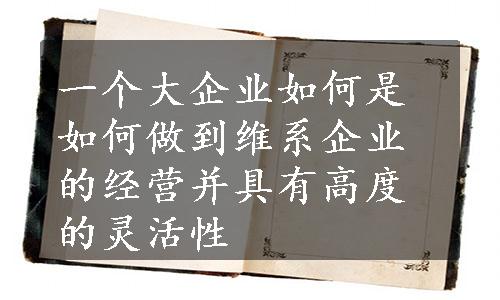 一个大企业如何是
如何做到维系企业
的经营并具有高度
的灵活性